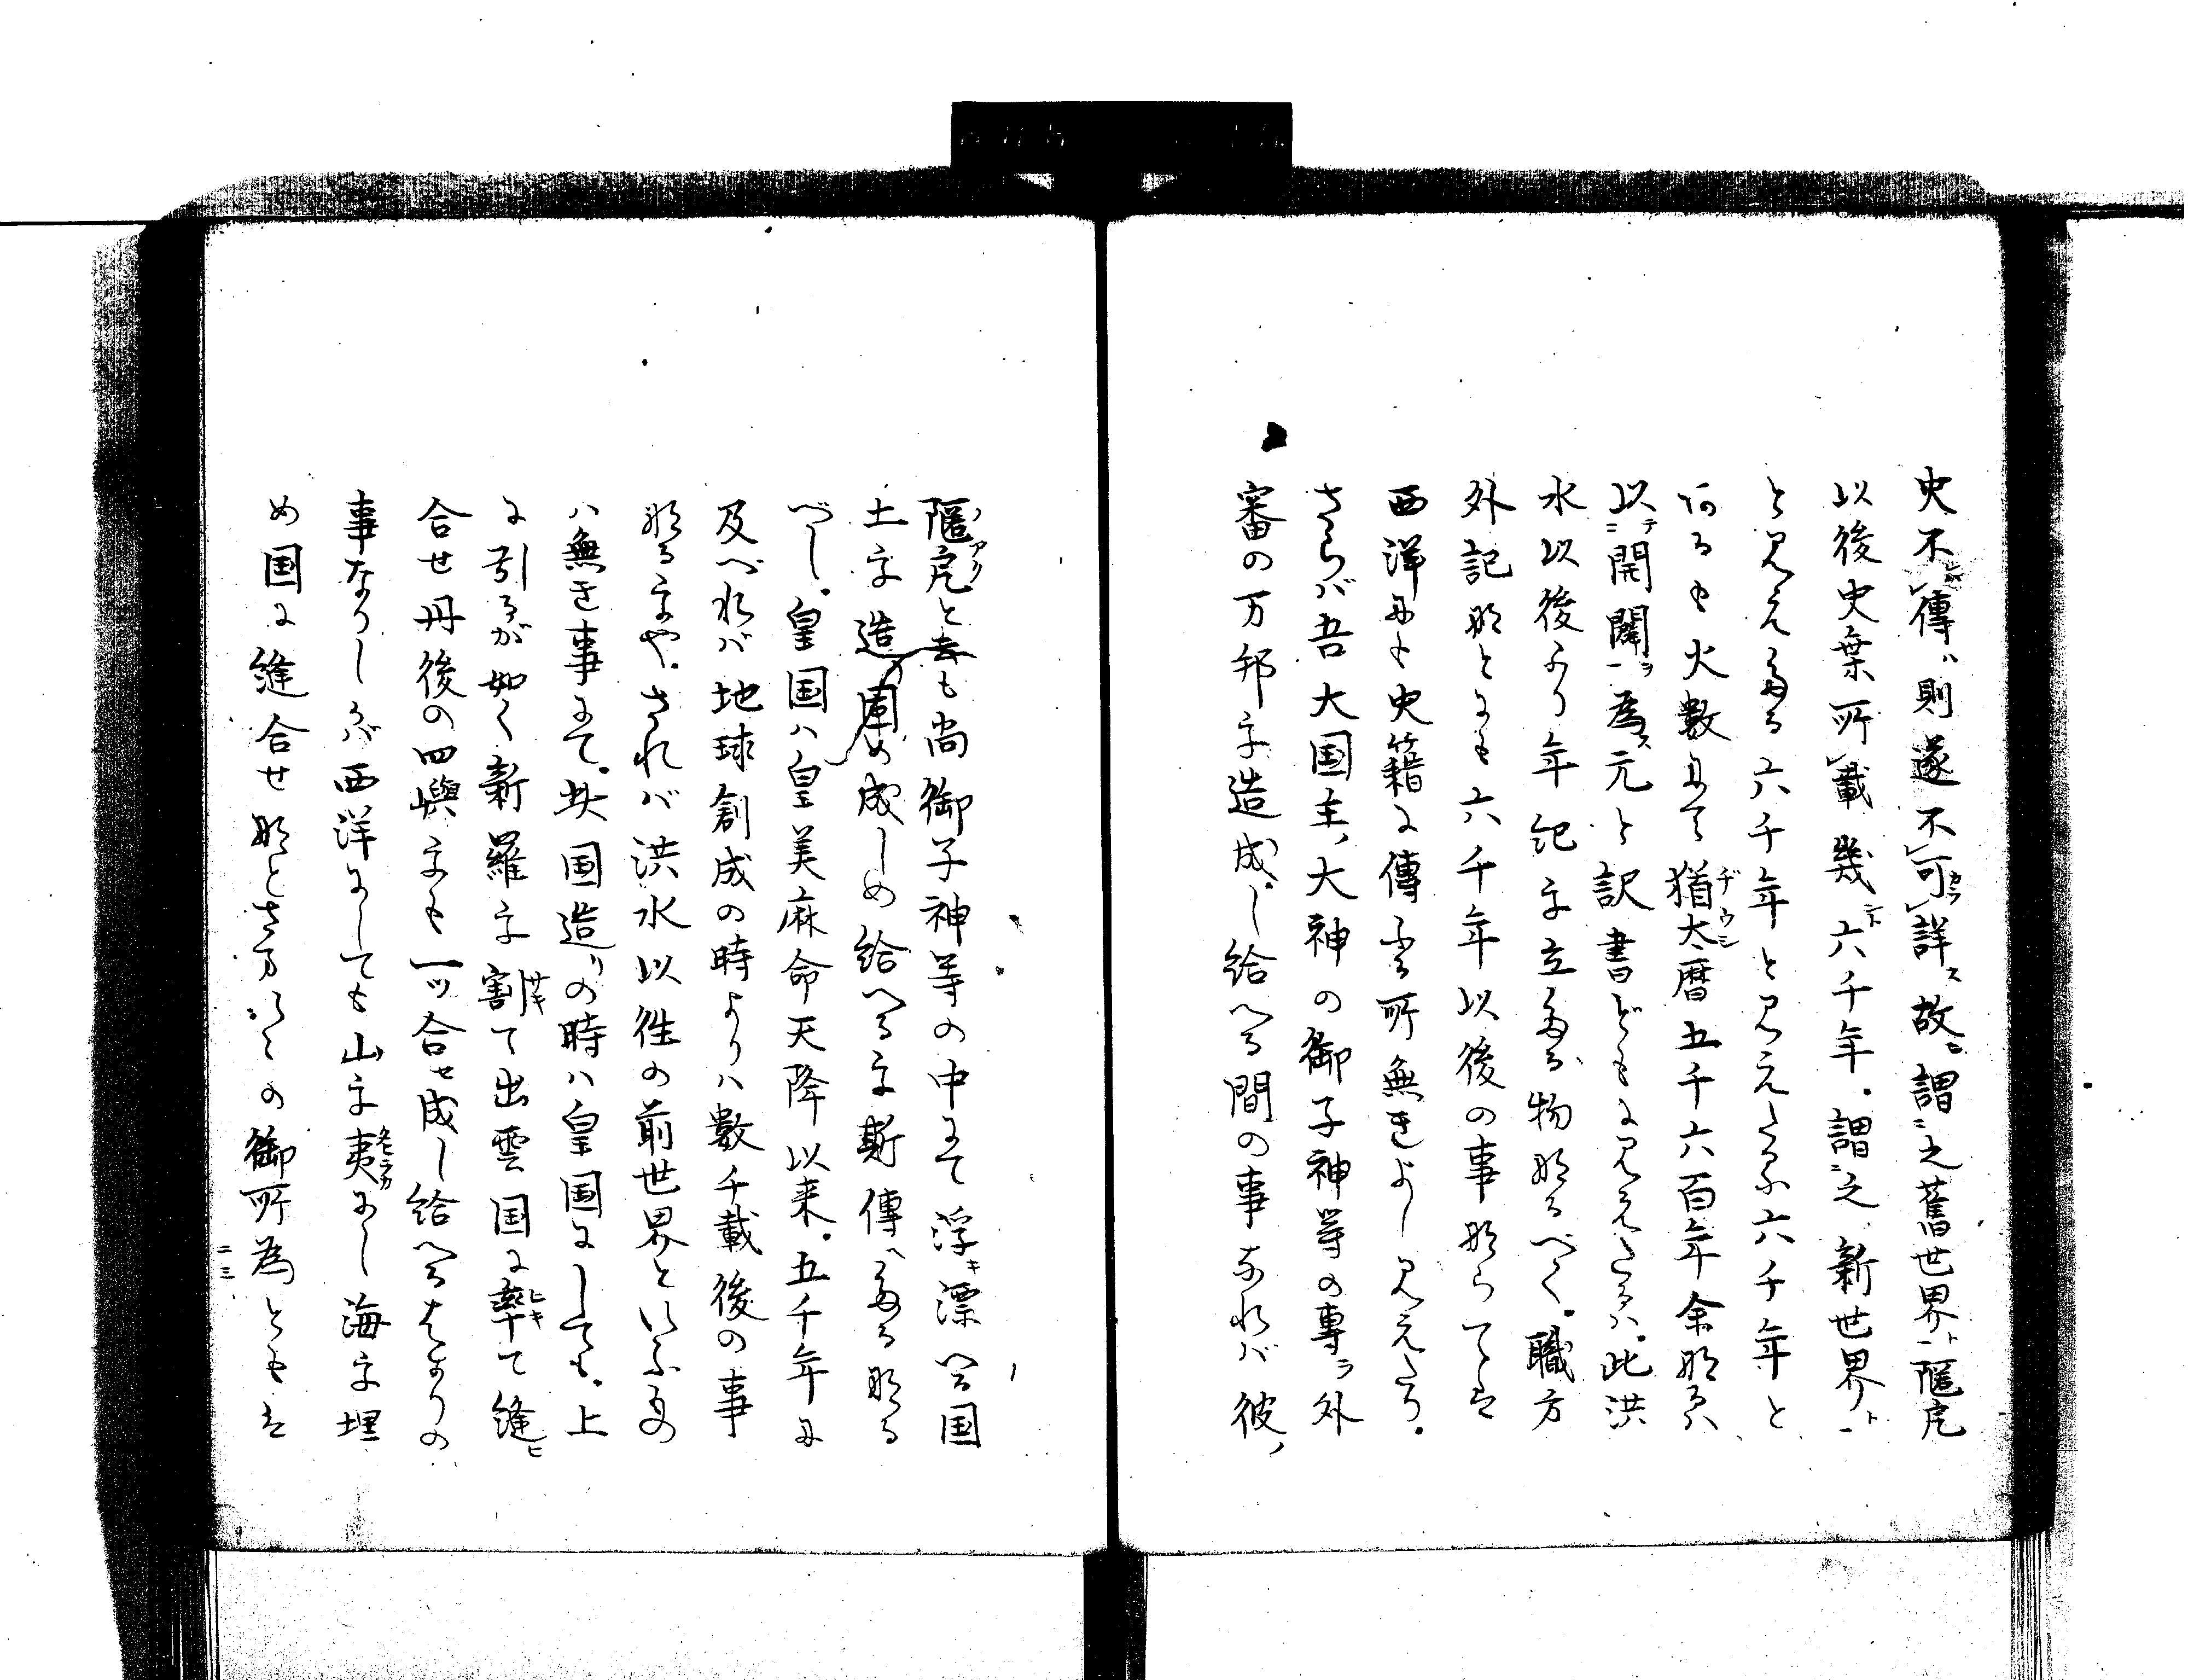 史不傳ハ則遂不可詳ス故ニ謂之舊世界ト阨戹
以後史葉所載幾ト六千年。謂之新世界ト
と見えたる六千年と見えたるハ六千年と
あるも大數にて猶太暦五千六百年余なるハ
以テ開闢ヲ為ス元と訳書どもに見えたるハ。此洪
水以後より年紀を立たる物なるべく。職方
外記などにも六千年以後の事ならでは
西洋にも史籍に傳ふる所無きよし見えたり。
さらバ吾大国主ノ大神の御子神等の專ラ外
審の万邦を造成し給へる間の事なれバ彼ノ
と云も尚御子神等の中にて浮キ漂へる国
土を造り固め成しめ給へるを斯傳へたるなる
べし。皇国ハ皇美麻命天降以来。五千年に
及べれバ地球創成の時よりハ數千載後の事
なるをや。されバ洪水以往の前世界といふもの
ハ無き事にて。其国造りの時ハ皇国にしても。上
に引るが如く新羅を割サキて出雲国に率ヒキて縫ヒ
合せ丹後の四嶼をも一ッ合セ成し給へるなどの
事なりしかバ西洋にしても山を夷タヒラカにし海を埋
め国に縫合せなどさま〴〵の御所為ともは